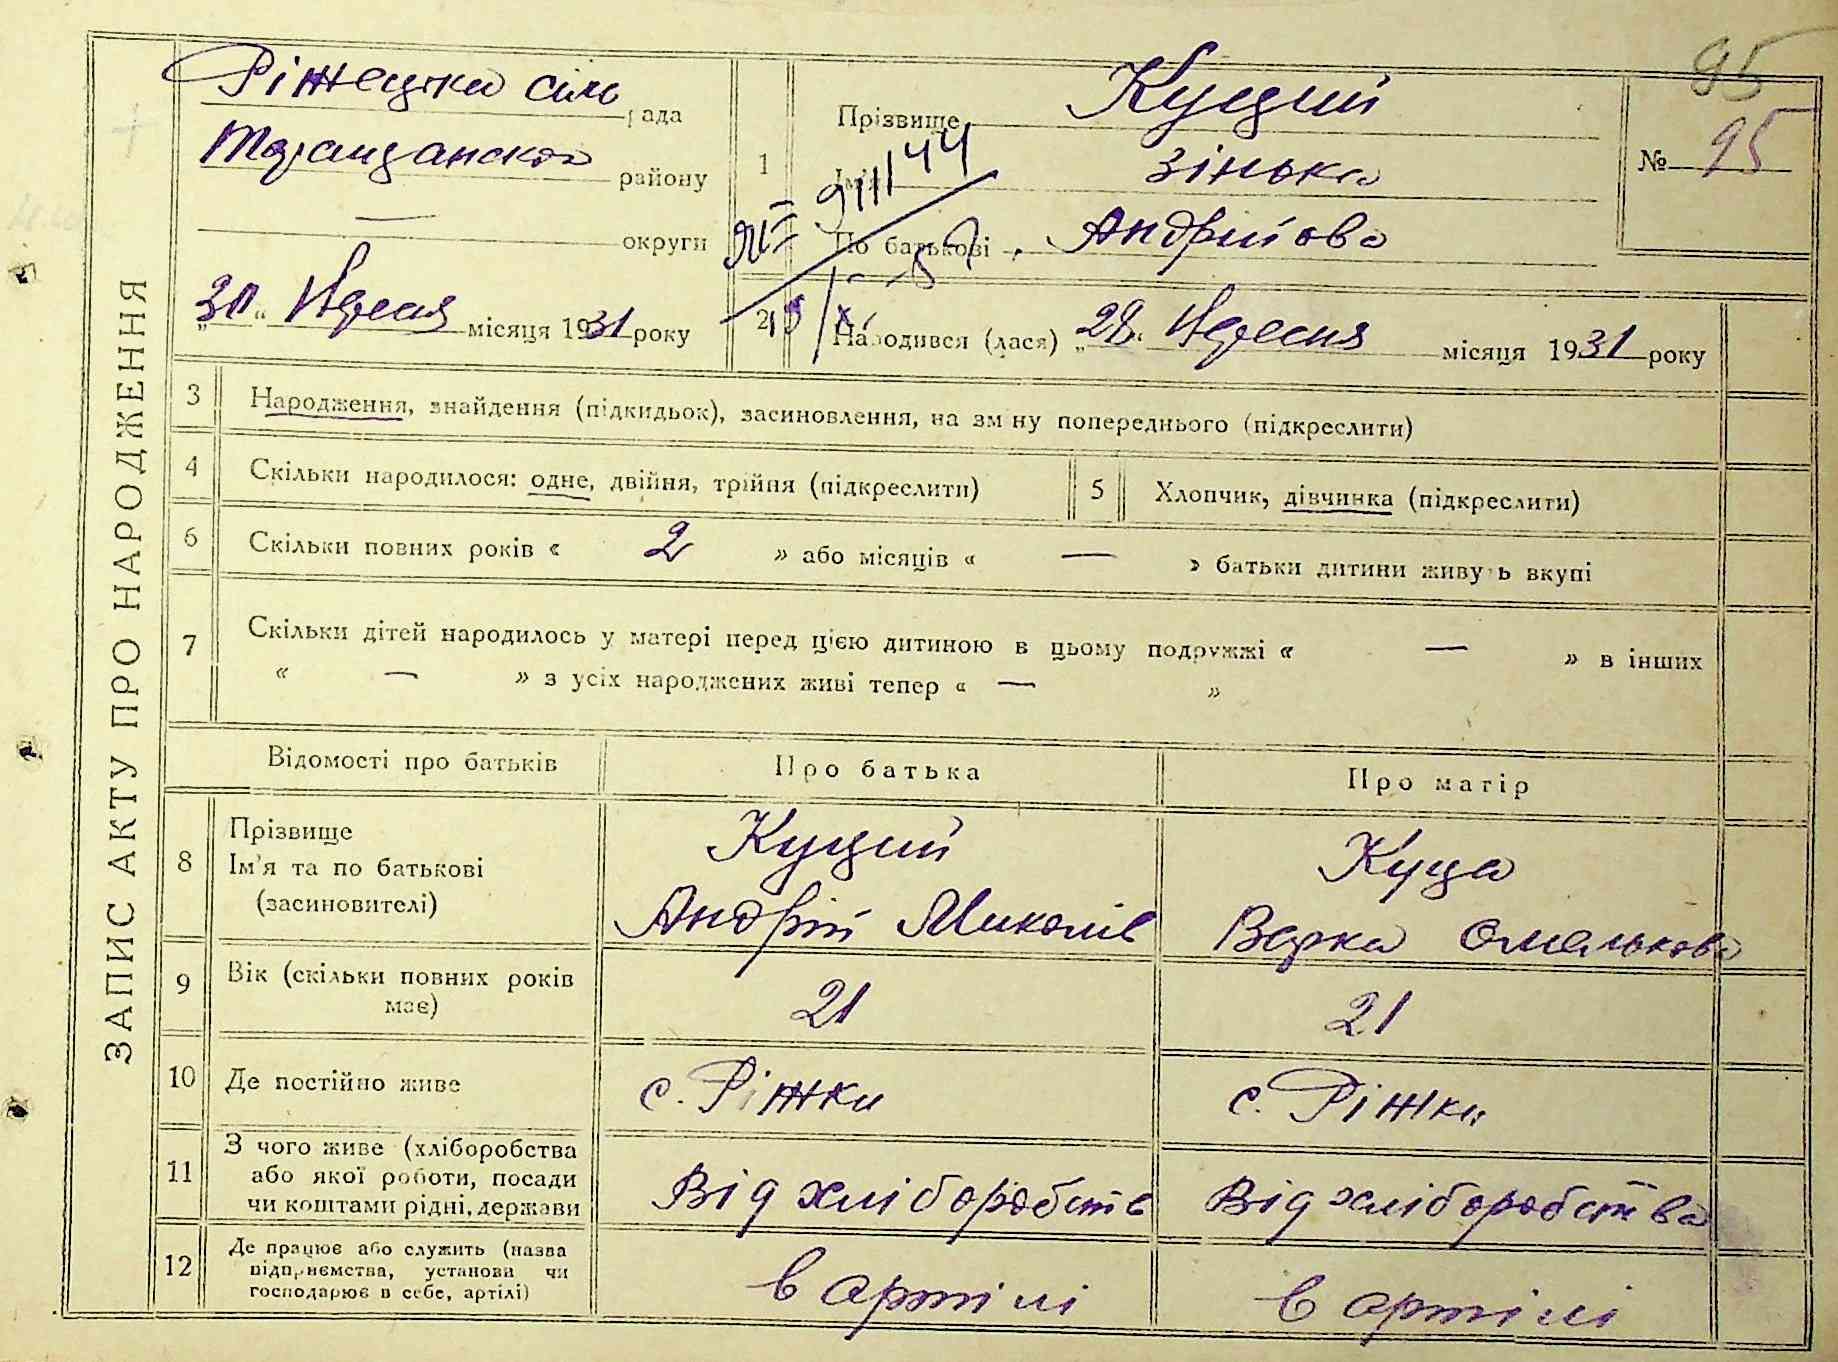 ЗАПИС АКТУ ПРО НАРОДЖЕННЯ
95
Ріжецька сіль рада
Таращанського району
— округи
„30“ Вересня місяця 1931 року
1
Прізвище Куций
Ім'я Зінька
По батькові Андрійова
№ 95
2
Народився (лася) „28“ Вересня місяця 1931 року
3 Народження, знайдення (підкидьок), засиновлення, на зміну попереднього (підкреслити)
4 Скільки народилося: одне, двійня, трійня (підкреслити)
5 Хлопчик, дівчинка (підкреслити)
6 Скільки повних років « 2 » або місяців « — » батьки дитини живуть вкупі
7 Скільки дітей народилось у матері перед цією дитиною в цьому подружжі « — » в інших
« — » з усіх народжених живі тепер « — »
Відомості про батьків Про батька Про матір
8 Прізвище
Ім'я та по батькові
(засиновителі)
Куций
Андрій Миколів
Куца
Варка Омелькова
9 Вік (скільки повних років
має)
21 21
10 Де постійно живе с. Ріжки с. Ріжки
11 З чого живе (хліборобства
або якої роботи, посади
чи коштами рідні, держави
Від хліборобств Від хліборобства
12 Де працює або служить (назва
підприємства, установи чи
господарює в себе, артілі)
в артілі в артілі